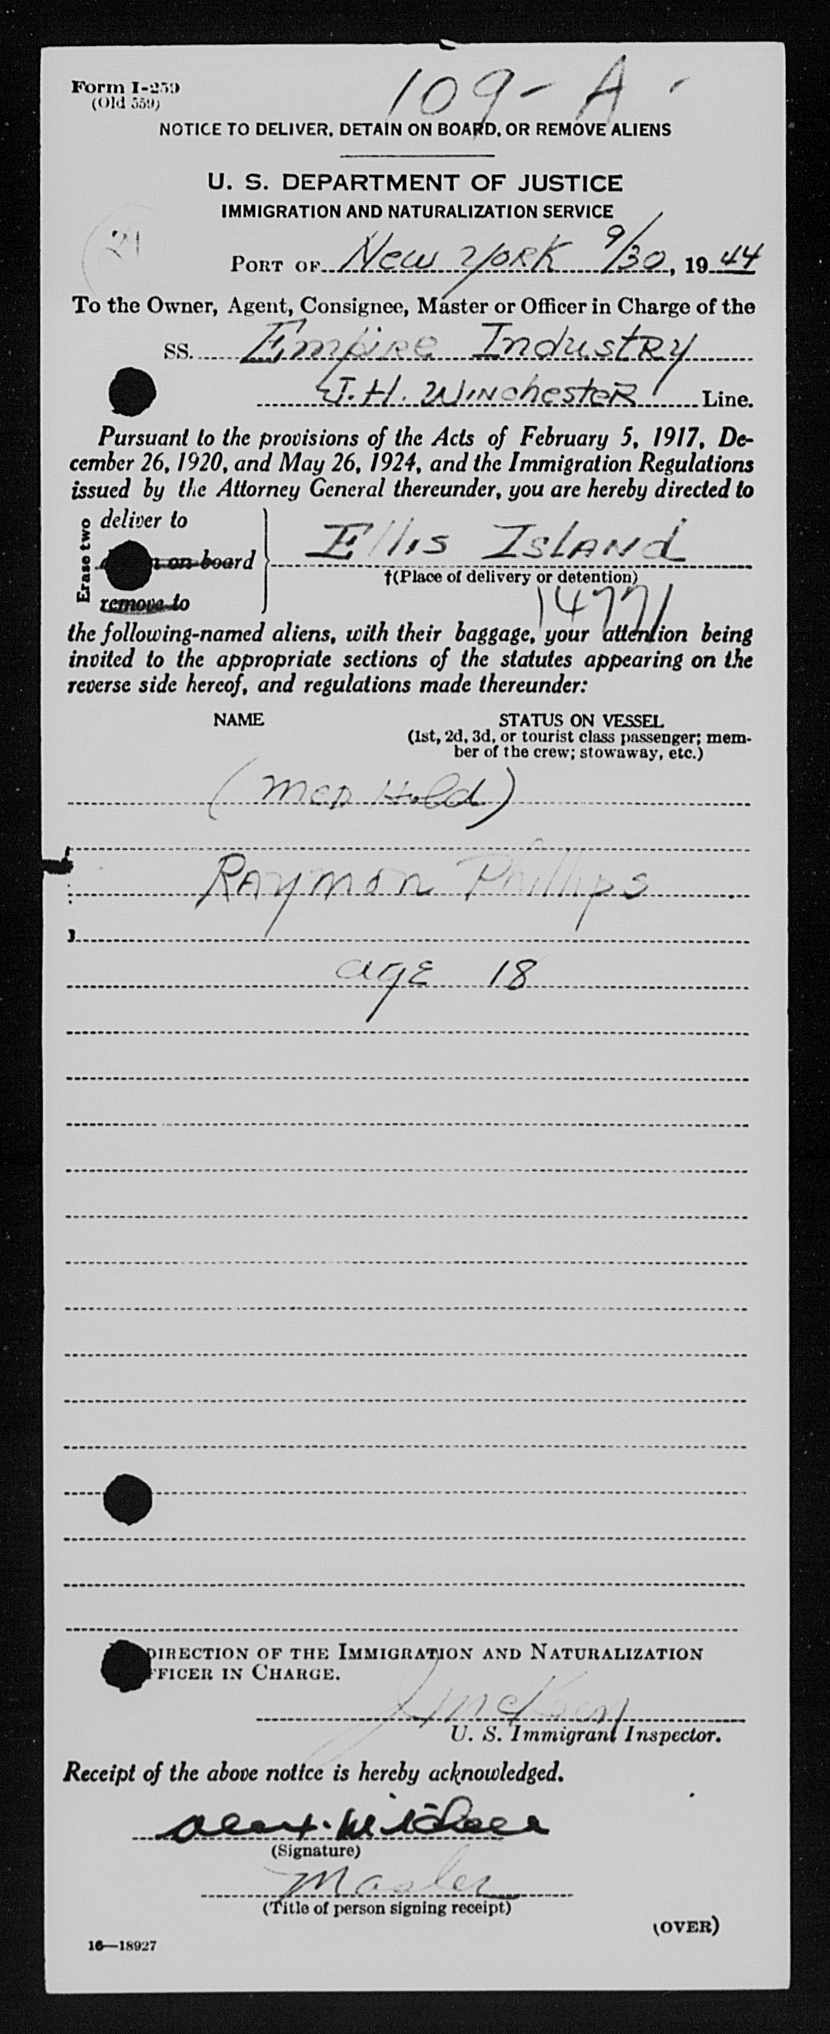 Form I-259
(Old 559)
109-A
NOTICE TO DELIVER, DETAIN ON BOARD, OR REMOVE ALIENS
U. S. DEPARTMENT OF JUSTICE
IMMIGRATION AND NATURALIZATION SERVICE
21
PORT OF New York 9/30, 1944
To the Owner, Agent, Consignee, Master or Officer in Charge of the
SS. Empire Industry
J.H. Winchester Line.
Pursuant to the provisions of the Acts of February 5, 1917, De-
cember 26, 1920, and May 26, 1924, and the Immigration Regulations
issued by the Attorney General thereunder, you are hereby directed to
Erase two
deliver to
on board
remove to
Ellis Island
†(Place of delivery or detention)
14771
the following-named aliens, with their baggage, your attention being
invited to the appropriate sections of the statutes appearing on the
reverse side hereof, and regulations made thereunder:
NAME STATUS ON VESSEL
(1st, 2d, 3d, or tourist class passenger; mem-
ber of the crew; stowaway, etc.)
(Med Hold)
Raymon Phillips
age 18
DIRECTION OF THE IMMIGRATION AND NATURALIZATION
OFFICER IN CHARGE.
U. S. Immigrant Inspector.
Receipt of the above notice is hereby acknowledged.
(Signature)
Master
(Title of person signing receipt)
(OVER)
16—18927